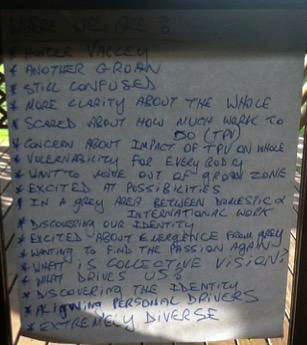 WHERE WE ARE?
* HUNTER VALLEY
* ANOTHER GROAN
* STILL CONFUSED
* MORE CLARITY ABOUT THE WHOLE
* SCARED ABOUT HOW MUCH WORK TO
DO (TPV)
* CONCERN ABOUT IMPACT OF TPV ON WHOLE
* VULERNABILITY FOR EVERYBODY
* WANT TO MOVE OUT OF GROAN ZONE
* EXCITED AT POSSIBILITIES
* IN A GREY AREA BETWEEN DOMESTIC &
INTERNATIONAL WORK
* DISCOVERING OUR IDENTITY
* EXCITED ABOUT EMERGENCE FROM
* WANTING TO FIND THE PASSION AGAIN
* WHAT IS COLLECTIVE VISION?
* WHAT DRIVES US?
* DISCOVERING THE IDENTITY
* ALIGNING PERSONAL DRIVERS
* EXTREMELY DIVERSE